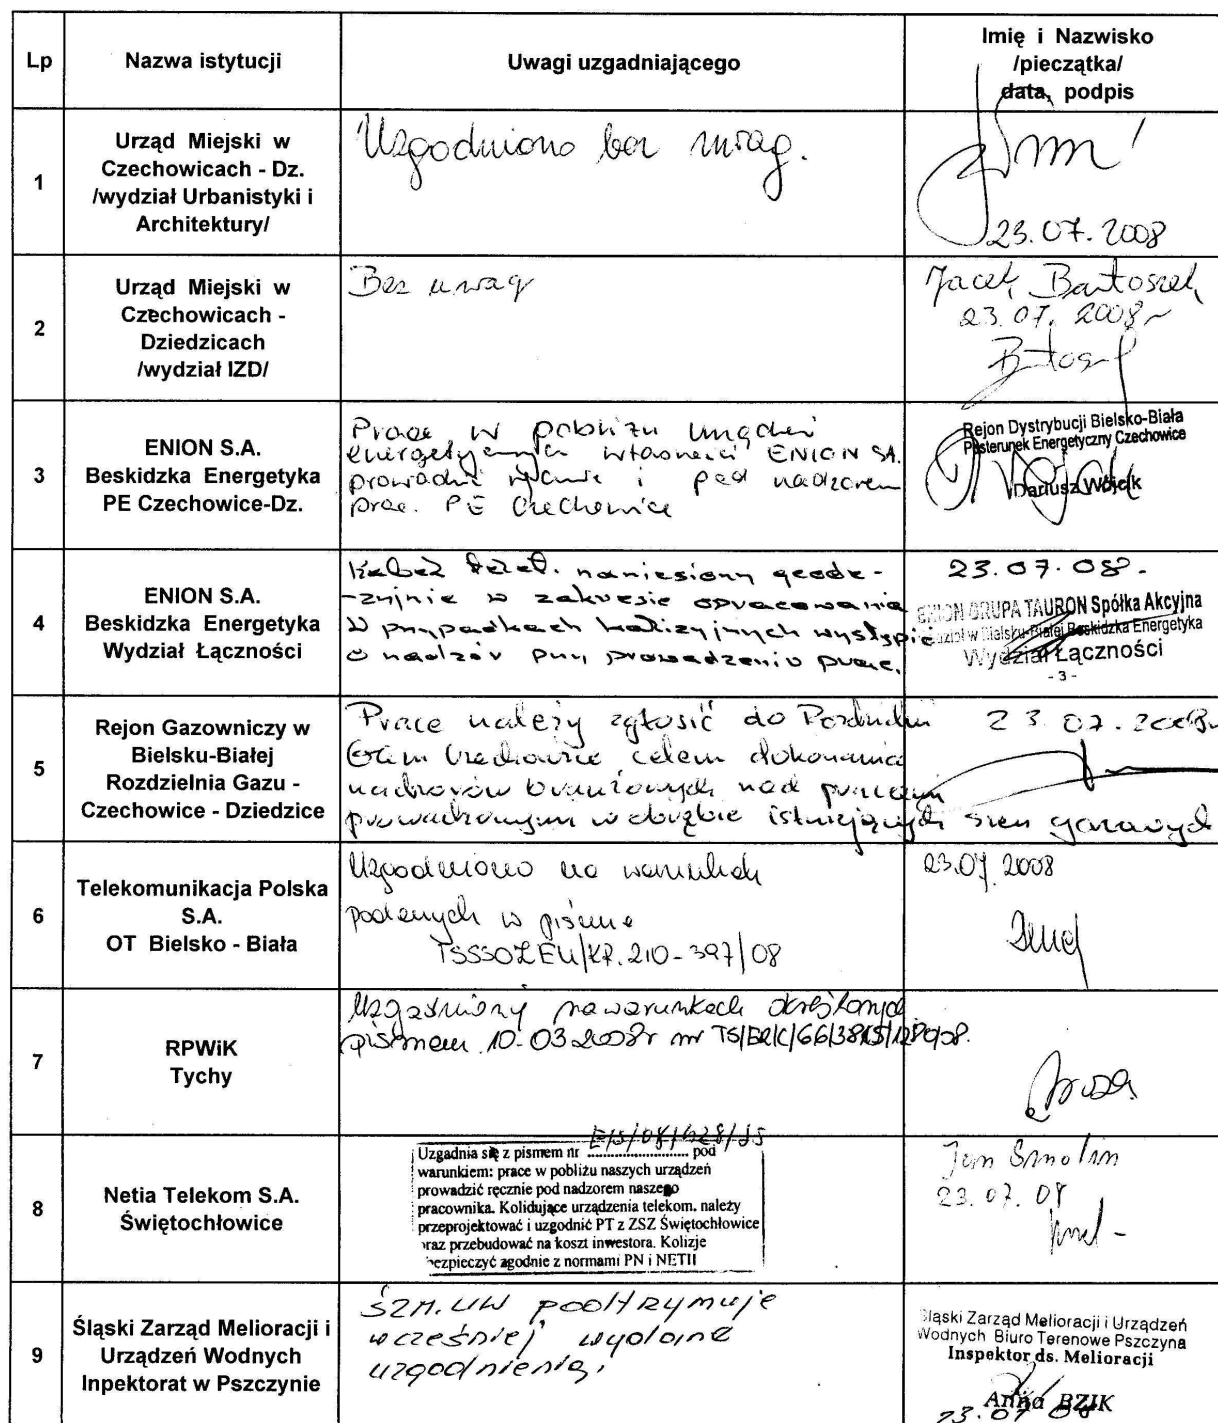 Lp
Nazwa istytucji
Uwagi uzgadniającego
Imię i Nazwisko
/pieczątka/
data, podpis
1
Urząd Miejski w
Czechowicach - Dz.
/wydział Urbanistyki i
Architektury/
Uzgodniono bez uwag.
23.07.2008
2
Urząd Miejski w
Czechowicach -
Dziedzicach
/wydział IZD/
Bez uwag
Jacek Bartoszek
23.07.2008r
3
ENION S.A.
Beskidzka Energetyka
PE Czechowice-Dz.
Prace w pobliżu urządzeń
energetycznych własności ENION SA.
prowadzić ręcznie i pod nadzorem
prac. PE Czechowice
Rejon Dystrybucji Bielsko-Biała
Posterunek Energetyczny Czechowice
Dariusz Wójcik
4
ENION S.A.
Beskidzka Energetyka
Wydział Łączności
Kabel telet. naniesiony geode-
-zyjnie w zakresie opracowania
W przypadkach kolizyjnych wystąpić
o nadzór przy prowadzeniu prac.
23.07.08.
ENION GRUPA TAURON Spółka Akcyjna
Oddział w Bielsku-Białej Beskidzka Energetyka
Wydział Łączności
- 3 -
5
Rejon Gazowniczy w
Bielsku-Białej
Rozdzielnia Gazu -
Czechowice - Dziedzice
Prace należy zgłosić do Rozdzielni
Gazu Czechowice celem dokonania
nadzorów branżowych nad pracami
prowadzonymi w obrębie istniejących sieci gazowych
23.07.2008r
6
Telekomunikacja Polska
S.A.
OT Bielsko - Biała
Uzgodniono na warunkach
podanych w piśmie
TSSSOZEU/KR.210-397/08
23.07.2008
7
RPWiK
Tychy
Uzgodniony na warunkach określonych
pismem 10-03.2008r nr
8
Netia Telekom S.A.
Świętochłowice
Uzgadnia się z pismem nr pod
warunkiem: prace w pobliżu naszych urządzeń
prowadzić ręcznie pod nadzorem naszego
pracownika. Kolidujące urządzenia telekom. należy
przeprojektować i uzgodnić PT z ZSZ Świętochłowice
oraz przebudować na koszt inwestora. Kolizje
bezpieczyć zgodnie z normami PN i NETII
Jan Smolin
23.07.08
9
Śląski Zarząd Melioracji i
Urządzeń Wodnych
Inpektorat w Pszczynie
ŚZM.UW podtrzymuje
wcześniej wydane
uzgodnienia.
Śląski Zarząd Melioracji i Urządzeń
Wodnych Biuro Terenowe Pszczyna
Inspektor ds. Melioracji
Anna BZIK
23.07.08